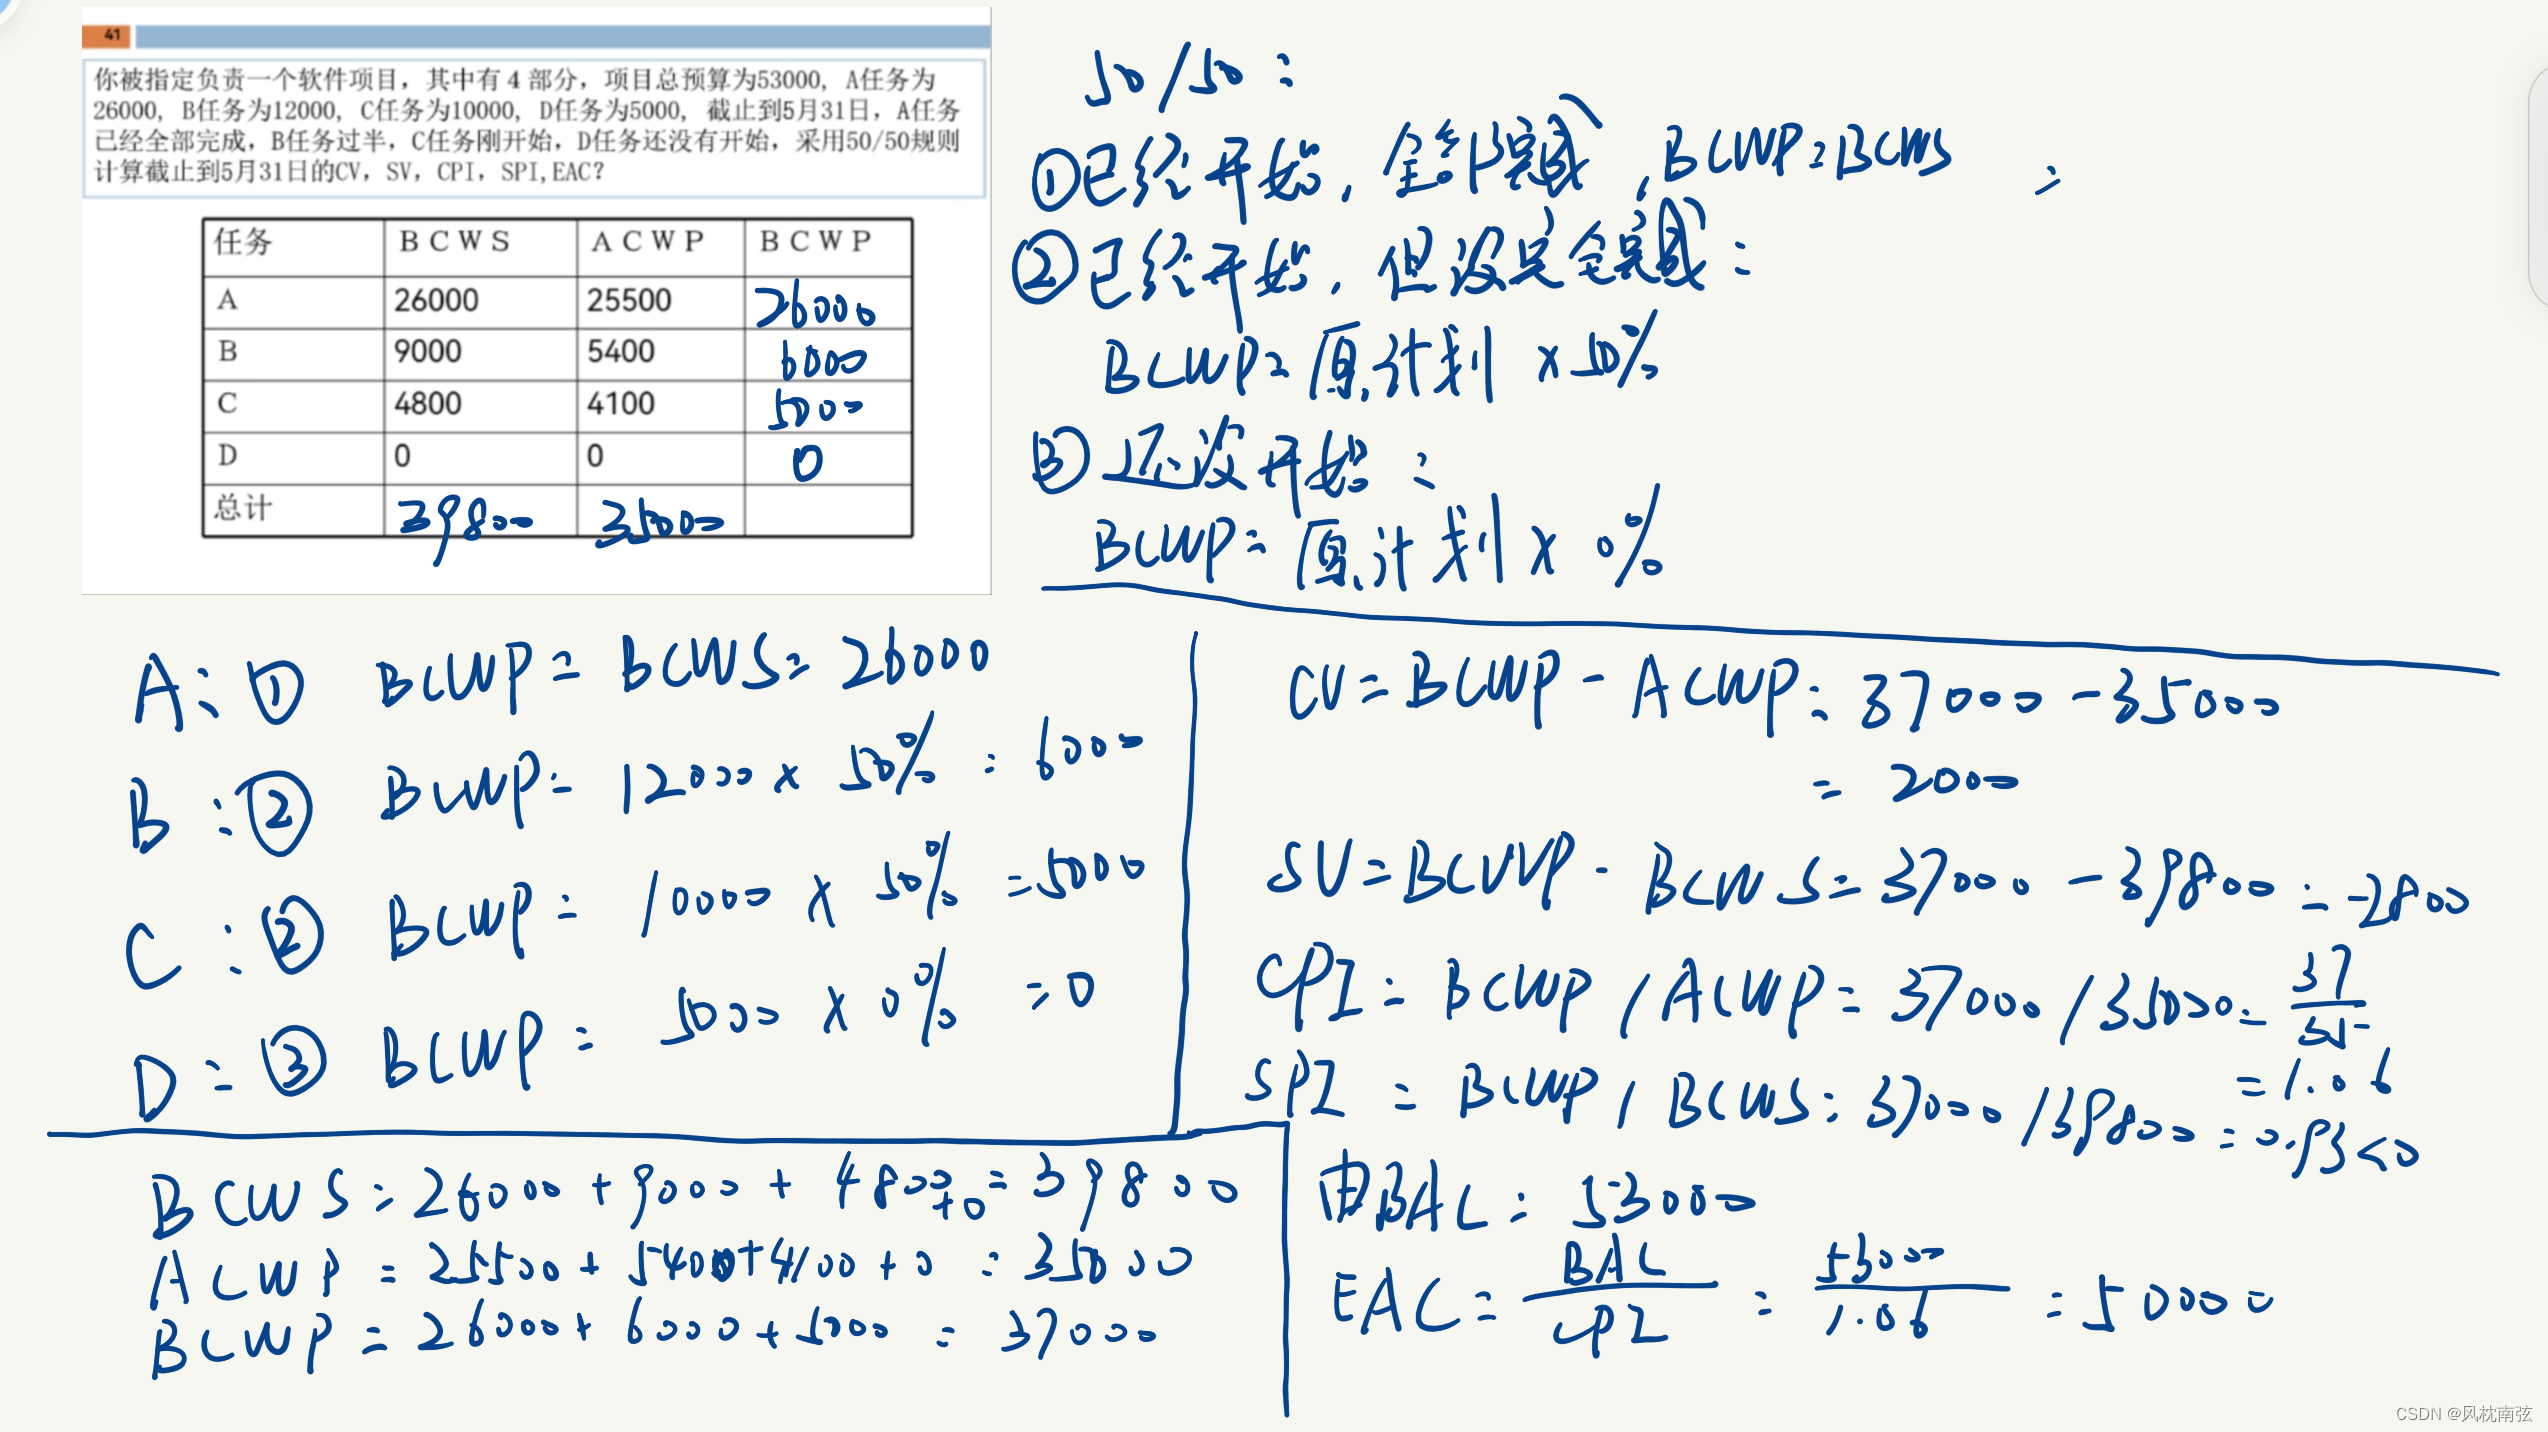 41
你被指定负责一个软件项目，其中有4部分，项目总预算为53000, A任务为
26000, B任务为12000, C任务为10000, D任务为5000, 截止到5月31日，A任务
已经全部完成，B任务过半，C任务刚开始，D任务还没有开始，采用50/50规则
计算截止到5月31日的CV, SV, CPI, SPI,EAC？
任务 BCWS ACWP BCWP
A 26000 25500 26000
B 9000 5400 6000
C 4800 4100 5000
D 0 0 0
总计 39800 35000
50/50：
①已经开始，全部完成，BCWP=BCWS ；
②已经开始，但没完全完成：
BCWP=原计划 ×50%
③还没开始：
BCWP=原计划 × 0%
A：① BCWP = BCWS = 26000
B：② BCWP = 12000 × 50% = 6000
C：② BCWP = 10000 × 50% = 5000
D：③ BCWP = 5000 × 0% = 0
BCWS = 26000 + 9000 + 4800 + 0 = 39800
ACWP = 25500 + 5400 + 4100 + 0 = 35000
BCWP = 26000 + 6000 + 5000 = 37000
CV = BCWP - ACWP = 37000 - 35000
= 2000
SV = BCWP - BCWS = 37000 - 39800 = -2800
CPI = BCWP / ACWP = 37000 / 35000 = 37/35
= 1.06
SPI = BCWP / BCWS = 37000 / 39800 = 0.93 < 0
由BAC = 53000
EAC = BAC/CPI = 53000/1.06 = 50000
CSDN @风枕南弦